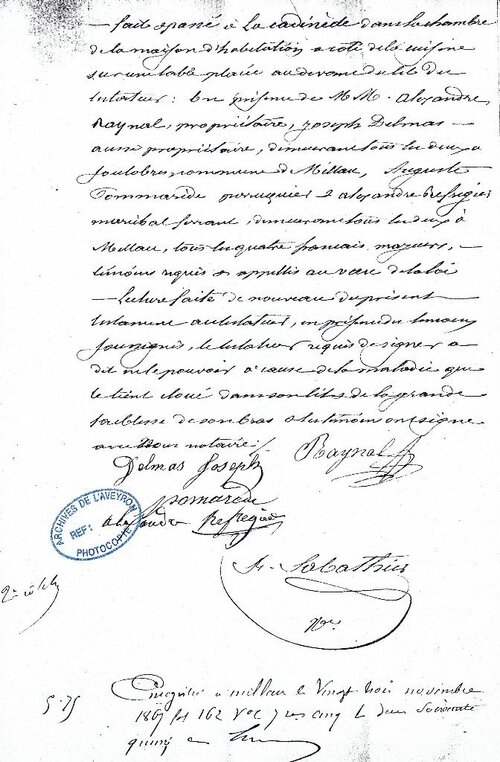 — fait et passé à la cadinède dans la chambre
de la maison d'habitation a coté de la cuisine
sur une table placée au devant du lit du
testateur : En présence de M.M. alexandre
Raynal, propriétaire, Joseph Delmas
aussi propriétaire, demeurant tous les deux à
soulobres, commune de Millau, Auguste
Pommarède perruquier & alexandre Refregier
maréchal ferrant, demeurant tous les deux à
Millau, tous les quatre français, majeurs, —
témoins requis & appellés au vœu de la loi
— Lecture faite de nouveau du présent
testament au testateur, en présence des temoins
soussignés, le testateur requis de signer a
dit ne le pouvoir à cause de la maladie que
le tient cloué dans son lit & de la grande
faiblesse de son bras & les témoins ont signé
avec Nous notaire ./.
Delmas Joseph Raynal
pomarede
alexandre Refregier
ARCHIVES DE L'AVEYRON
REF:
PHOTOCOPIE
Sabathier
Nre
5.75
Enregistré a millau le Vingt trois novembre
fos 162 Vo C 7 Reçu cinq